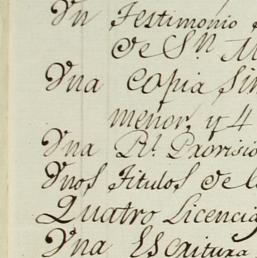 Vn Testimonio
de Sn. M
Vna Copia Sim
menor, y 4
Vna Rl. Provisio
Vnos Titulos de l
Quatro Licencia
Vna Escritura